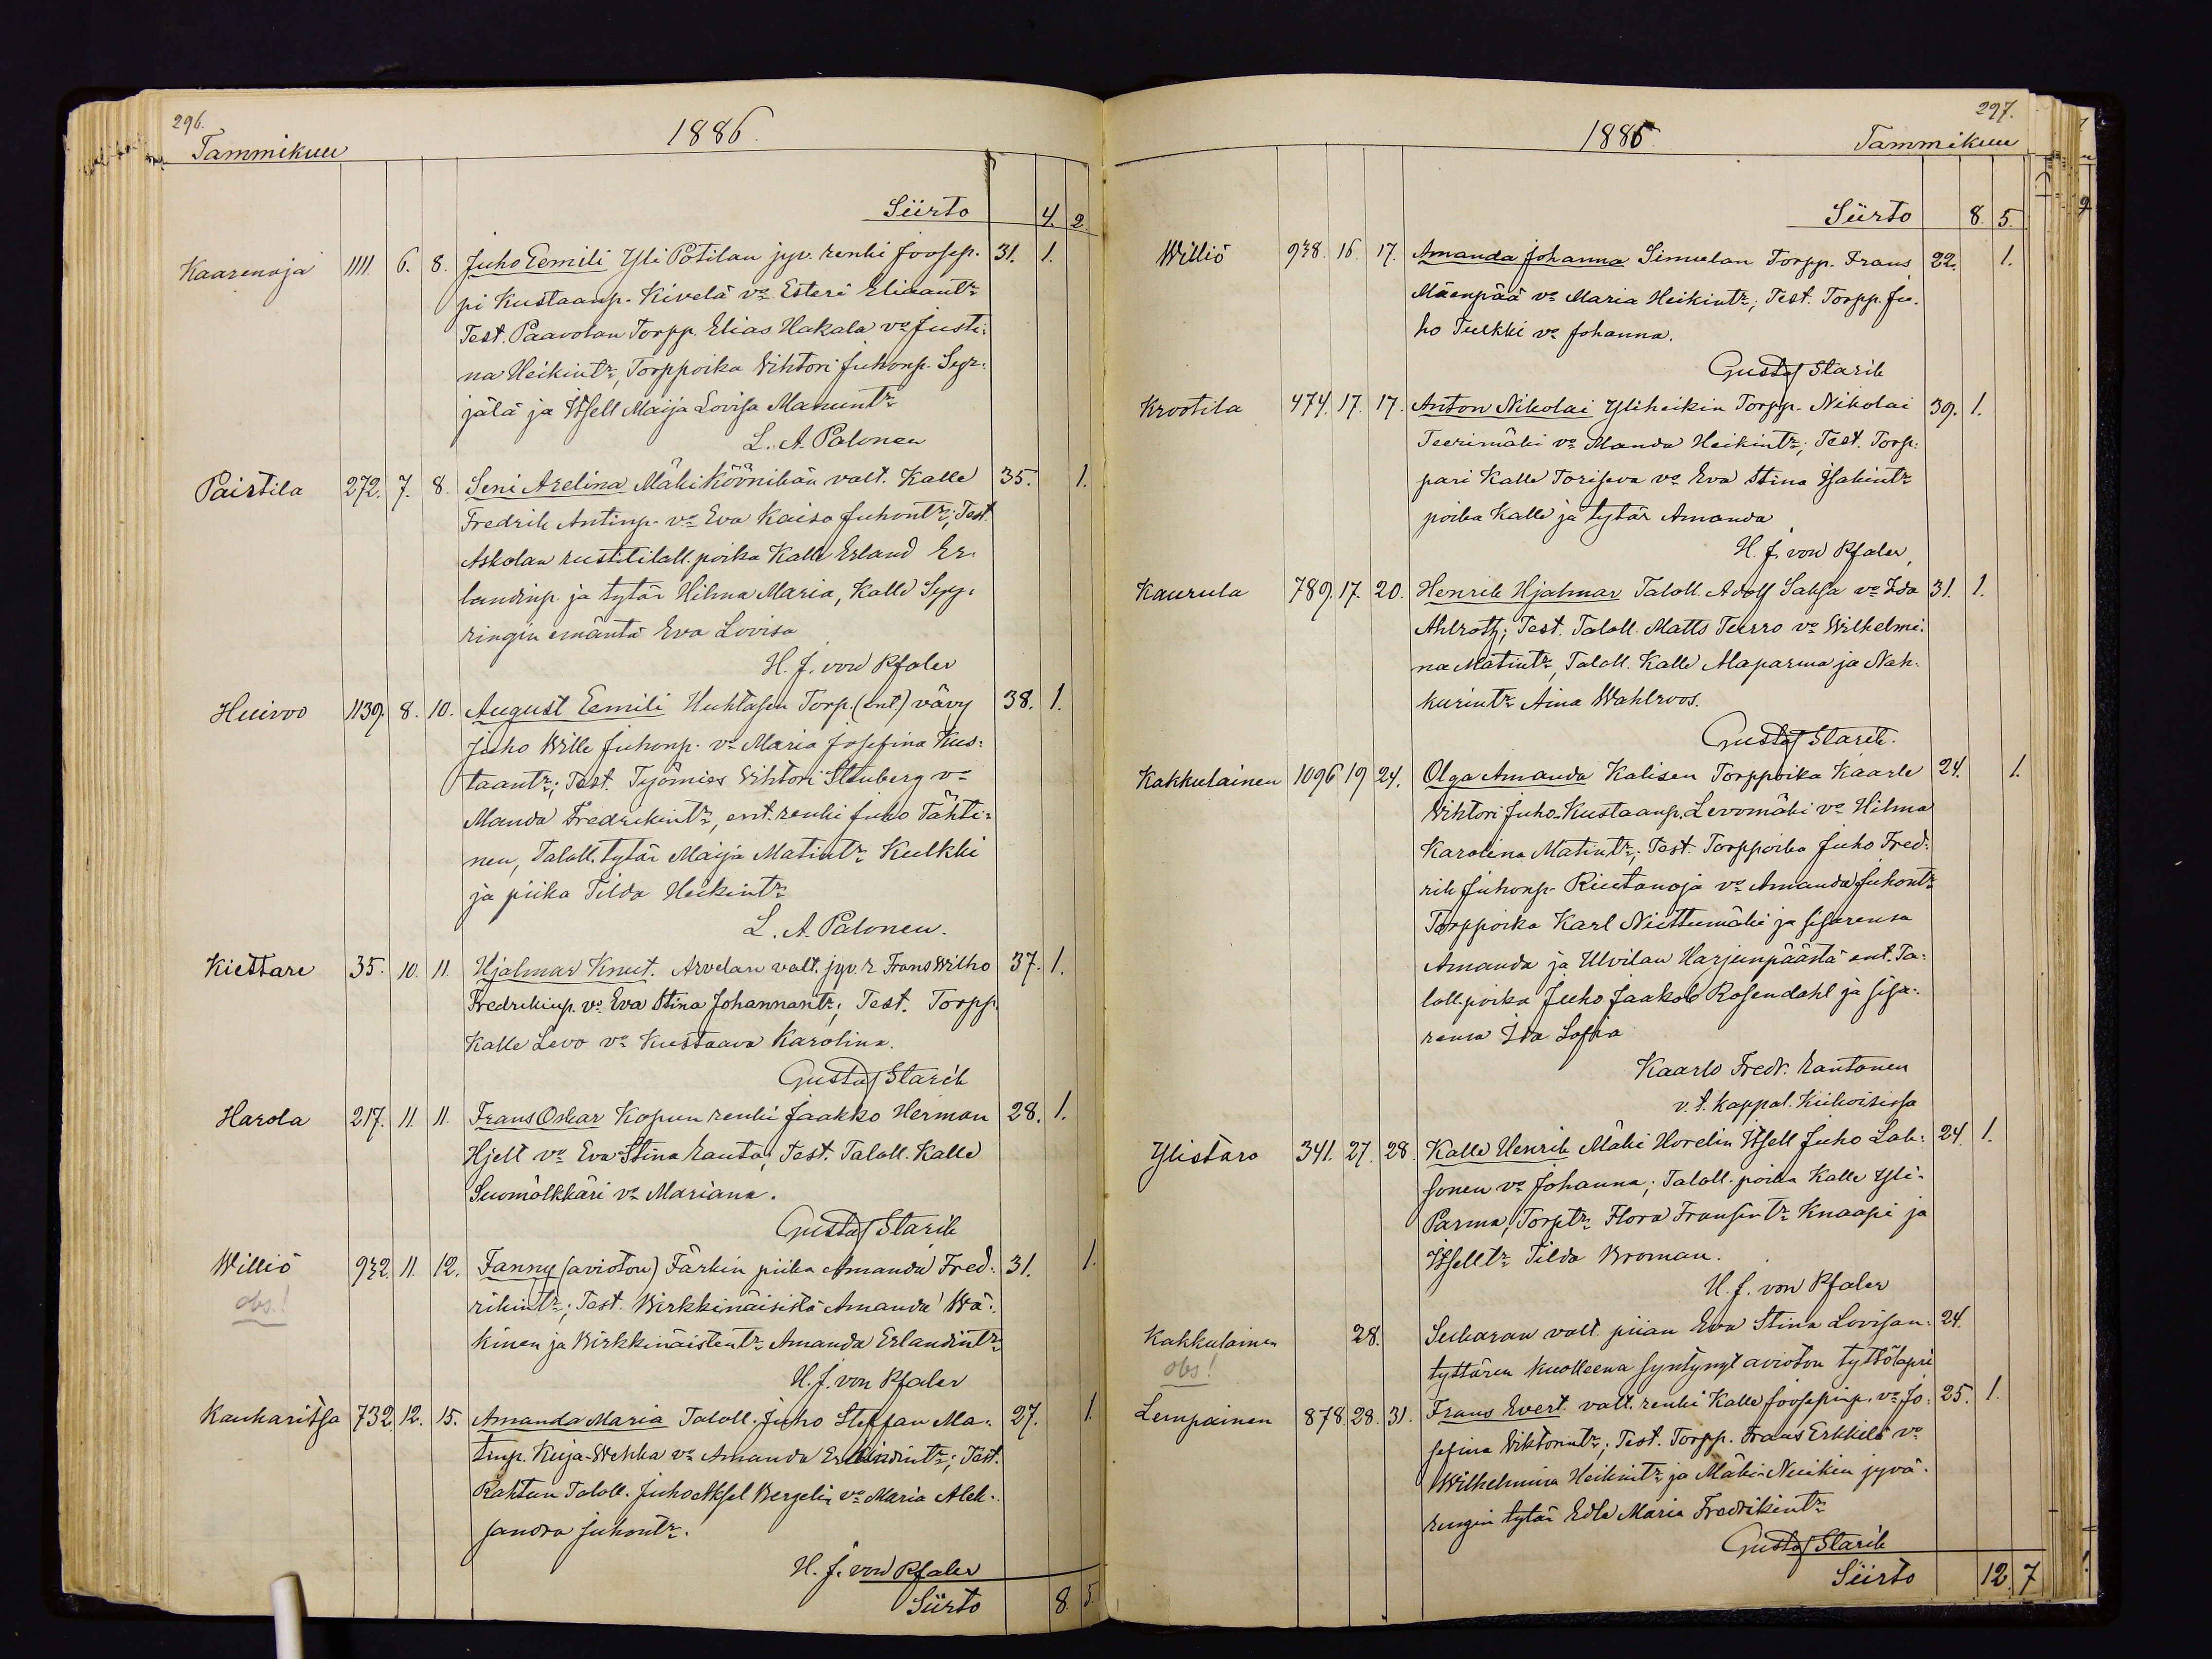 296.
Tammikuu 1886.
Siirto 4. 2.
Kaarenoja 1111. 6. 8. Juho Eemili Yli Potilan jyv. renki Joosep- 31. 1.
pi Kustaanp. Kivelä vo Esteri Eliaantr
Test. Paavolan Torpp. Elias Hakala vo Justi-
na Heikintr, Torppoika Vihtori Juhonp. Syr-
jälä ja Itsell Maija Lovisa Manuntr
L. A. Palonen
Pairtila 272. 7. 8. Seni Axelina Mäki Köönikän valt. Kalle 35. 1.
Fredrik Antinp. vo Eva Kaisa Juhontr; Test.
Askolan rustitilall. poika Kalle Erland Er-
landinp. ja tytär Hilma Maria, Kalle Sepp.
ringin emäntä Eva Lovisa
H. J. von Pfaler
Huivoo 1139. 8. 10. August Eemili Huhtasen Torp. (ent) vävy 38. 1.
Juho Wille Juhonp. vo Maria Josefina Kus-
taantr; Test. Työmies Vihtori Stenberg vo
Manda Fredrikintr, ent. renki Juho Tähti-
nen, Taloll. tytär Maija Matintr Kulkki
ja piika Tilda Heikintr
L. A. Palonen.
Kiettare 35. 10. 11. Hjalmar Knut. Arvelan valt. jyv. r. Frans Wilho 37. 1.
Fredrikinp. vo Eva Stina Johannantr; Test. Torpp.
Kalle Levo vo Kustaava Karolina.
Gustaf Starck
Harola 217. 11. 11. Frans Oskar Kopun renki Jaakko Herman 28. 1.
Hjelt vo Eva Stina Rauta; Test. Taloll. Kalle
Suomölkkäri vo Mariana.
Gustaf Starck
Williö 932. 11. 12. Fanny (avioton) Färkin piika Amanda Fred- 31. 1.
obs! rikintr; Test. Wirkkinäisistä Amanda Wä-
kinen ja Wirkkinäistentr Amanda Erlandintr
H. J. von Pfaler
Kauharitsa 732. 12. 15. Amanda Maria Taloll. Juho Steffan Ma- 27. 1.
tinp. Kuja-Wehka vo Amanda Erlandintr; Test.
Rahtun Taloll. Juho Aksel Bergelin vo Maria Alek-
sandra Juhontr.
H. J. von Pfaler
Siirto 8. 5.
297.
1886. Tammikuu
Siirto 8. 5.
Williö 938. 16. 17. Amanda Johanna Simulan Torpp. Frans 22. 1.
Mäenpää vo Maria Heikintr; Test. Torpp. Ju-
ho Tulkki vo Johanna.
Gustaf Starck
Krootila 474. 17. 17. Anton Nikolai Yliheikin Torpp. Nikolai 39. 1.
Teerimäki vo Manda Heikintr; Test. Torp-
pari Kalle Toriseva vo Eva Stina Isakintr
poika Kalle ja tytär Amanda
H. J. von Pfaler,
Kaurula 789. 17. 20. Henrik Hjalmar Taloll. Adolf Saksa vo Ida 31. 1.
Ahlroth; Test. Taloll. Matts Turro vo Wilhelmi-
na Matintr, Taloll. Kalle Alaparma ja Nah-
kurintr Aina Wahlroos.
Gustaf Starck.
Kakkulainen 1096 19 24. Olga Amanda Kalisen Torppoika Kaarle 24. 1.
Vihtori Juho-Kustaanp. Levomäki vo Hilma
Karolina Matintr; Test. Torppoika Juho Fred-
rik Juhonp. Riutanoja vo Amanda Juhontr
Torppoika Karl Niittumäki ja sisarensa
Amanda ja Ulvilan Harjunpäästä ent. Ta-
loll. poika Juho Jaakob Rosendahl ja sisa-
rensa Ida Sofia
Kaarlo Fredr. Rantanen
v. t. Kappal. Kiikoisissa
Ylistaro 341. 27. 28. Kalle Henrik Mäki Horelin Itsell Juho Lak- 24. 1.
sonen vo Johanna; Taloll. poika Kalle Yli-
Parma, Torptr Flora Fransintr Knaapi ja
Itselltr Tilda Broman.
H. J. von Pfaler
Kakkulainen 28. Suharan valt. piian Eva Stina Lovisan- 24.
obs! tyttären kuolleena syntynyt avioton tyttölapsi
Lempainen 878. 28. 31. Frans Evert. valt. renki Kalle Joosepinp. vo Jo- 25. 1.
sefina Viktorintr; Test. Torpp. Frans Erkkilä vo
Wilhelmina Heikintr ja Mäki-Nuikin jyvä-
rengin tytär Edla Maria Fredrikintr
Gustaf Starck
Siirto 12. 7